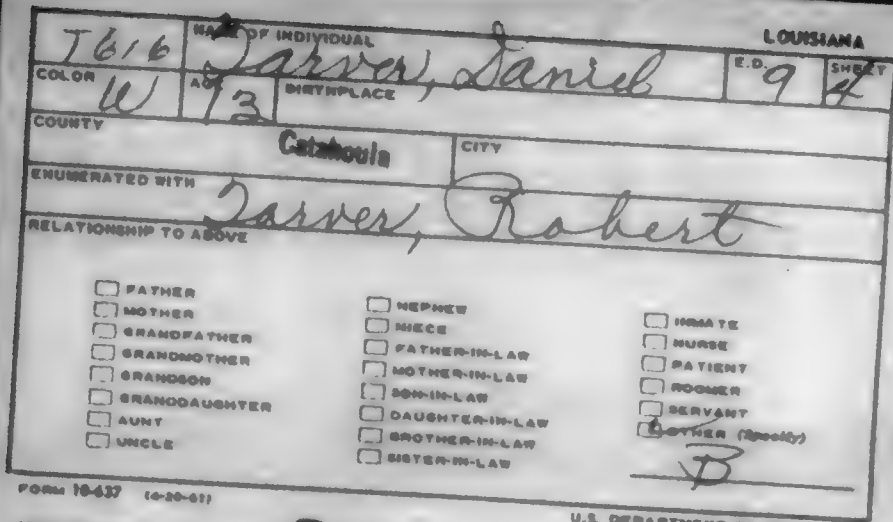 LOUISIANA
T616 NAME OF INDIVIDUAL Tarver, Daniel E.D. 9 SHEET 4
COLOR W AGE 13 BIRTHPLACE
COUNTY Catahoula CITY
ENUMERATED WITH Tarver, Robert
RELATIONSHIP TO ABOVE
FATHER
MOTHER
GRANDFATHER
GRANDMOTHER
GRANDSON
GRANDDAUGHTER
AUNT
UNCLE
NEPHEW
NIECE
FATHER-IN-LAW
MOTHER-IN-LAW
SON-IN-LAW
DAUGHTER-IN-LAW
BROTHER-IN-LAW
SISTER-IN-LAW
INMATE
NURSE
PATIENT
ROOMER
SERVANT
OTHER (Specify)
B
FORM 10-637 (4-20-61)
U.S.